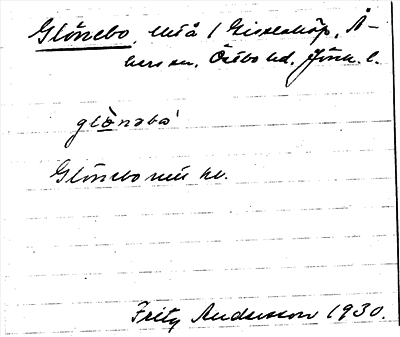 Glönebo, utså / Gissesköp, Å-
kers sn, Östbo hd, Jönk. l.
glö̀nabo`
Glönebo mä hv.
Fritz Andersson 1930.